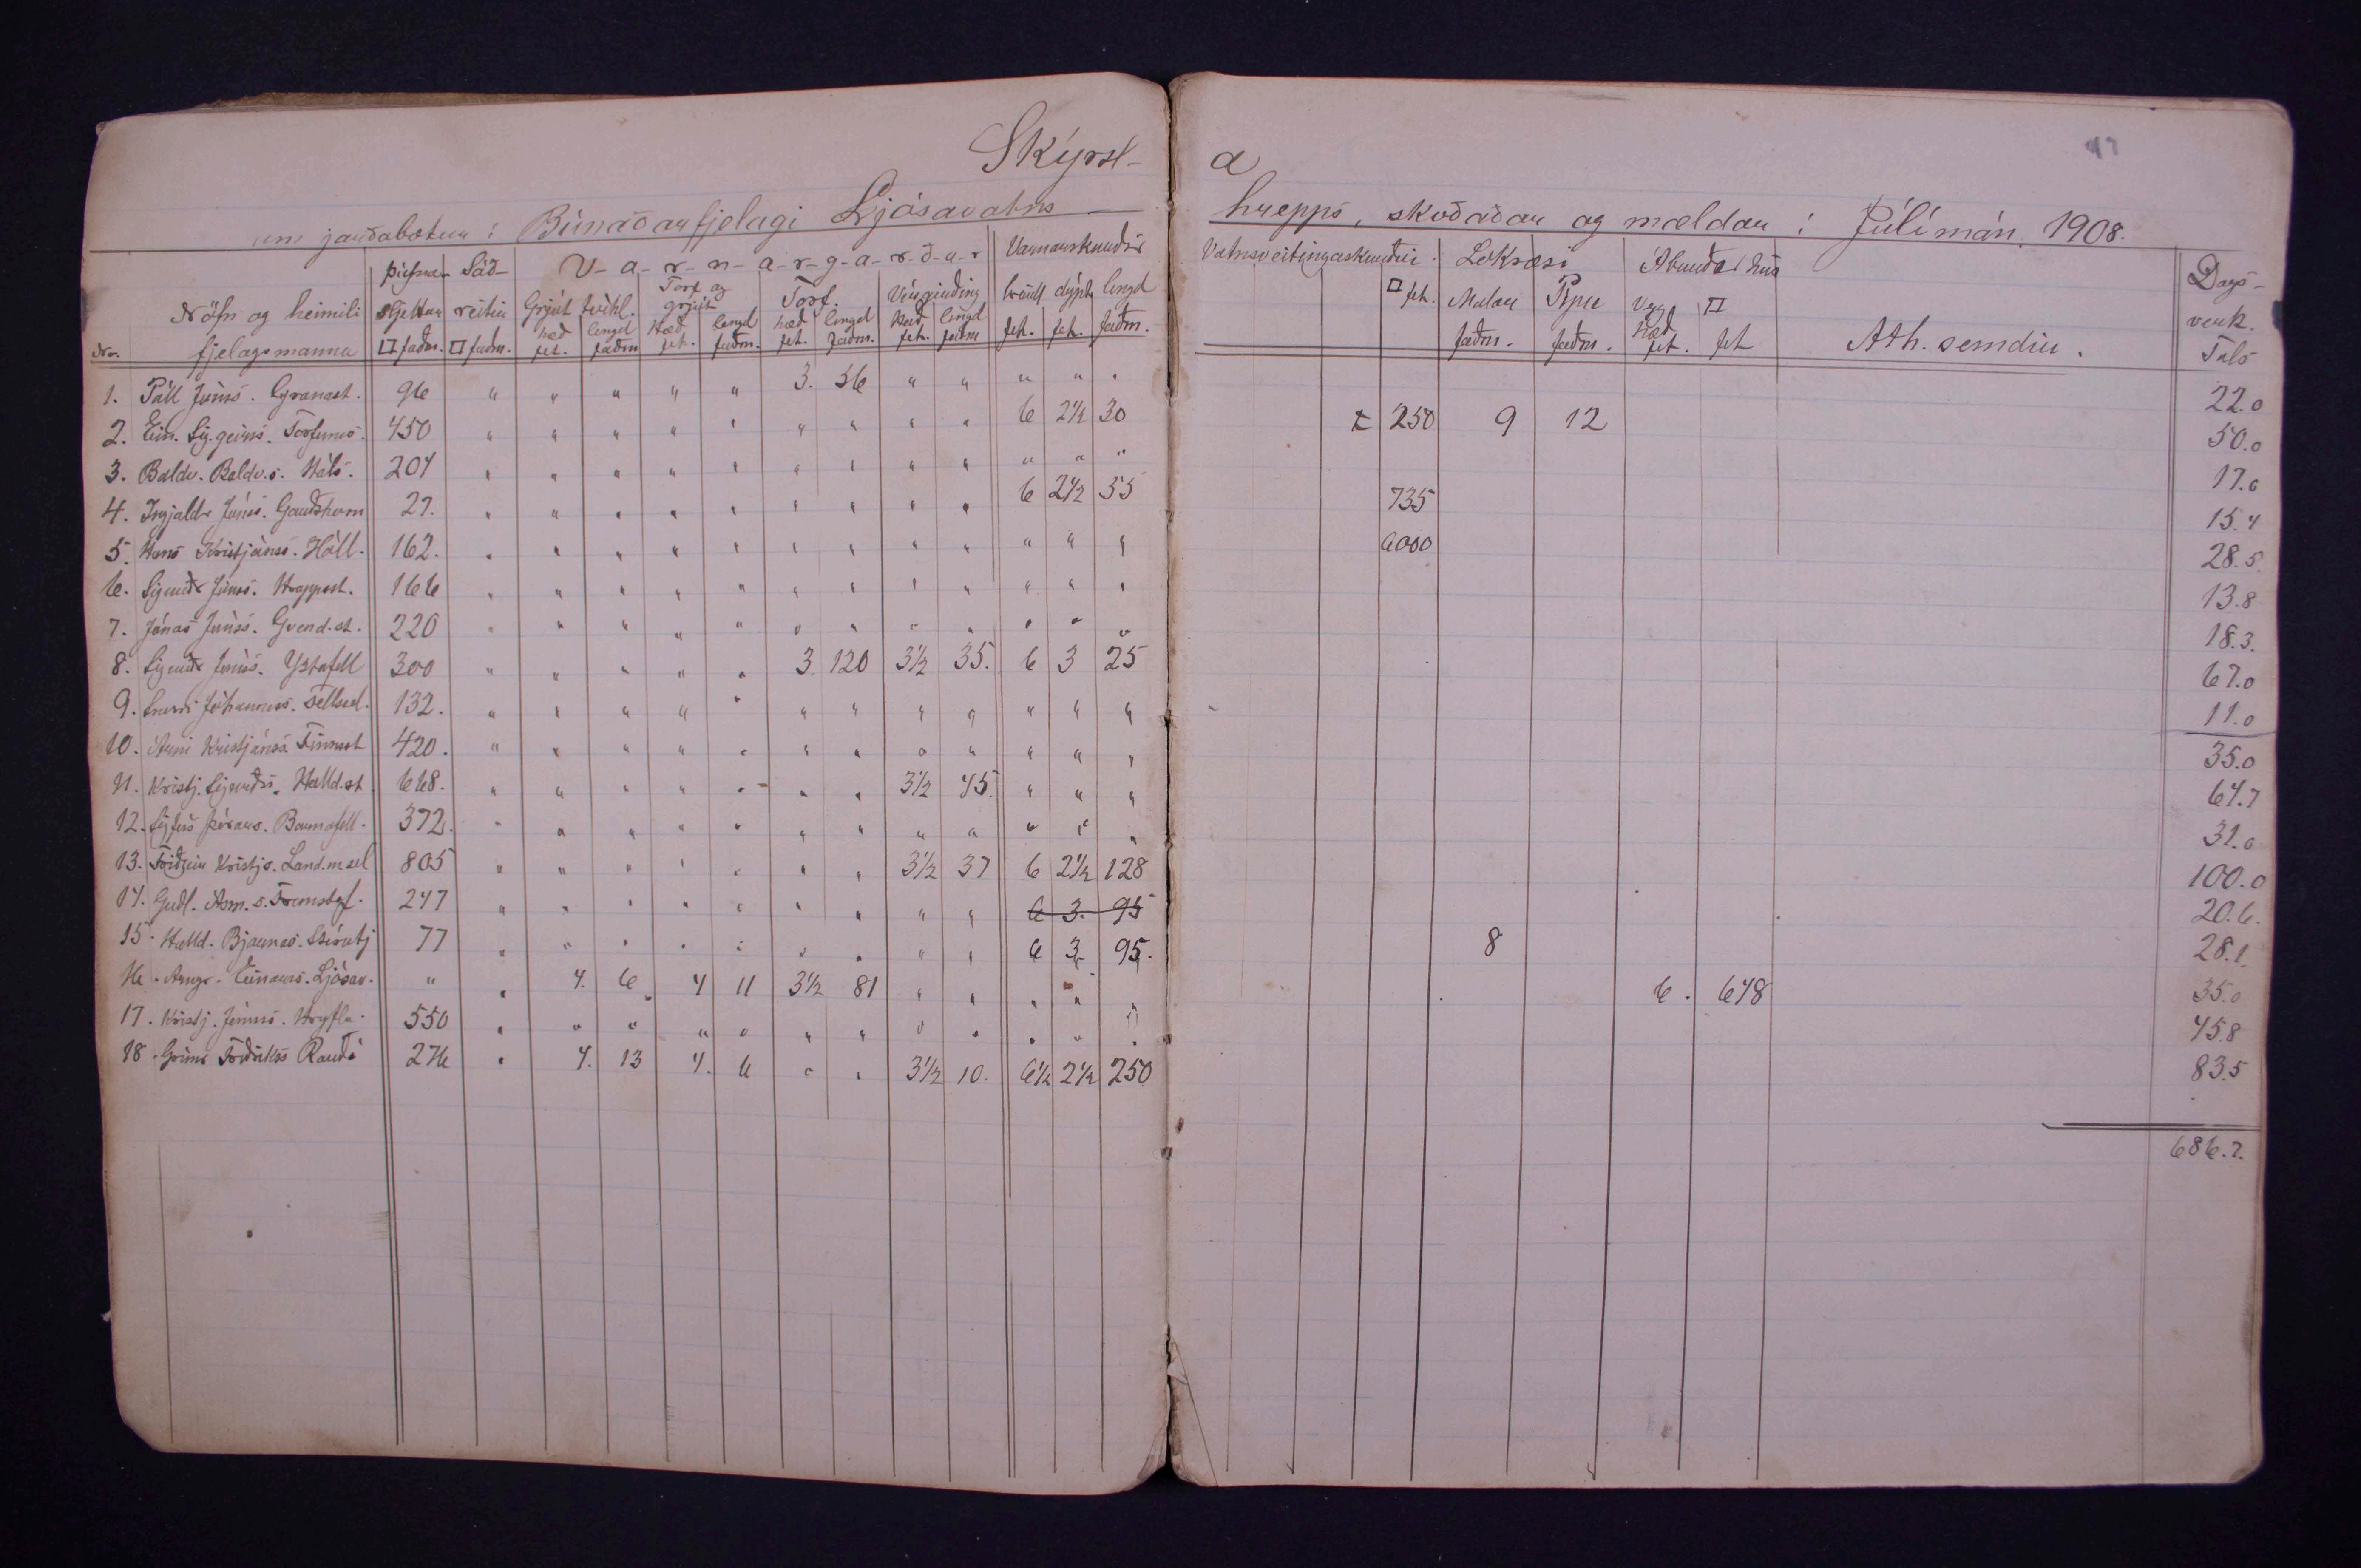 Skýrsl- a
47
um jarðabætur í Búnaðarfjelagi Ljósavatns hrepps, skoðaðar og mældar í Júlímán. 1908.
Nr. Nöfn og heimili fjelagsmanna
þúfna- sljettur □ faðm.
Sáð- reitir □ faðm.
V-a-r-n-a-r-g-a-r-ð-a-r
Grjót tvíhl. hæð fet. lengd faðm
Torf og grjót Hæð fet. lengd faðm.
Torf. hæð fet. lengd faðm.
Vírgirðing Hæð fet. lengd faðm
Varnarskurðir breidd fet. dýpt fet. lengd faðm.
Vatnsveitingaskurðir □ fet.
Lokræsi Malar faðm. Pípu faðm.
Áburðarhús Vegg Hæð fet. □ fet
Ath. semdir.
Dags- verk. Tals
1. Páll Jónss. Granast. 96 " " " " " 3. 56 " " " " " 22.0
2. Sig.geirss. 450 " " " " " " " " " 6 2½ 30 250 9 12 50.0
3. Baldv. Baldv.s. Háls. 204 " " " " " " " " " " " " 17.0
4. Ingjaldr Jónss. 27. " " " " " " " " " 6 2½ 55 735 15.4
5. Hans Kristjánss. Hóll. 162. " " " " " " " " " " " " 6000 28.5
6. Sigurðr Jónss. 166 " " " " " " " " " " " " 13.8
7. Jónas Jónss. Gvend.st. 220 " " " " " " " " " " " " 18.3.
8. Sigurðr Jónss. Ystafell 300 " " " " " 3 120 3½ 35. 6 3 25 67.0
9. Jóhanness. Fellssel. 132. " " " " " " " " " " " " 11.0
10. Árni Kristjánss. Finnsst 420. " " " " " " " " " " " " 35.0
11. Kristj. Sigurðs. Halld.st 668. " " " " " " " 3½ 45. " " " 64.7
12. 372. " " " " " " " " " " " " 31.0
13. Friðgeir Kristjs. Land.m.sel 805 " " " " " " " 3½ 37 6 2½ 128 100.0
14. Guðl. Ásm.s. 247 " " " " " " " " " 6 3. 95 20.6.
15. Halld. Bjarnas. 77 " " " " " " " " " 6 3. 95. 8 28.1.
16. Arngr. Einarss. Ljósav. " " 4. 6 4 11 3½ 81 " " " " " 6. 648 35.0
17. Kristj. Jónss. Hrifla. 550 " " " " " " " " " " " " 45.8
18. Friðrikss 276 " 4. 13 4. 6 " " 3½ 10. 6½ 2½ 250 83.5
686.7.